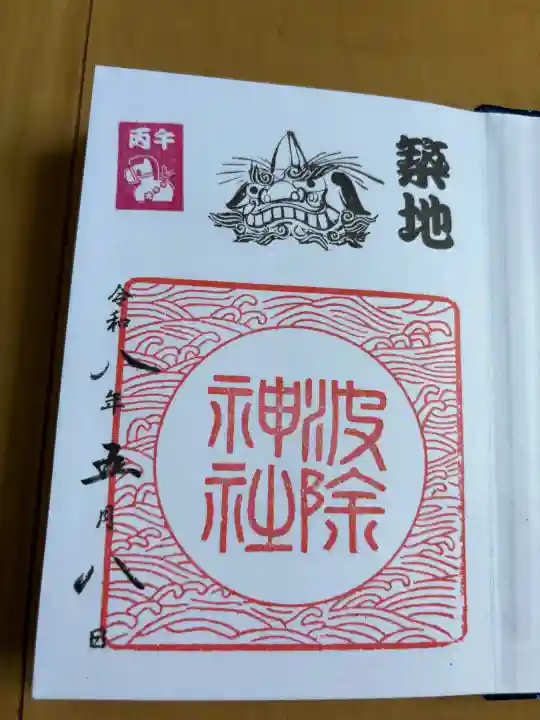 築地
丙午
波除
神社
令和八年五月八日